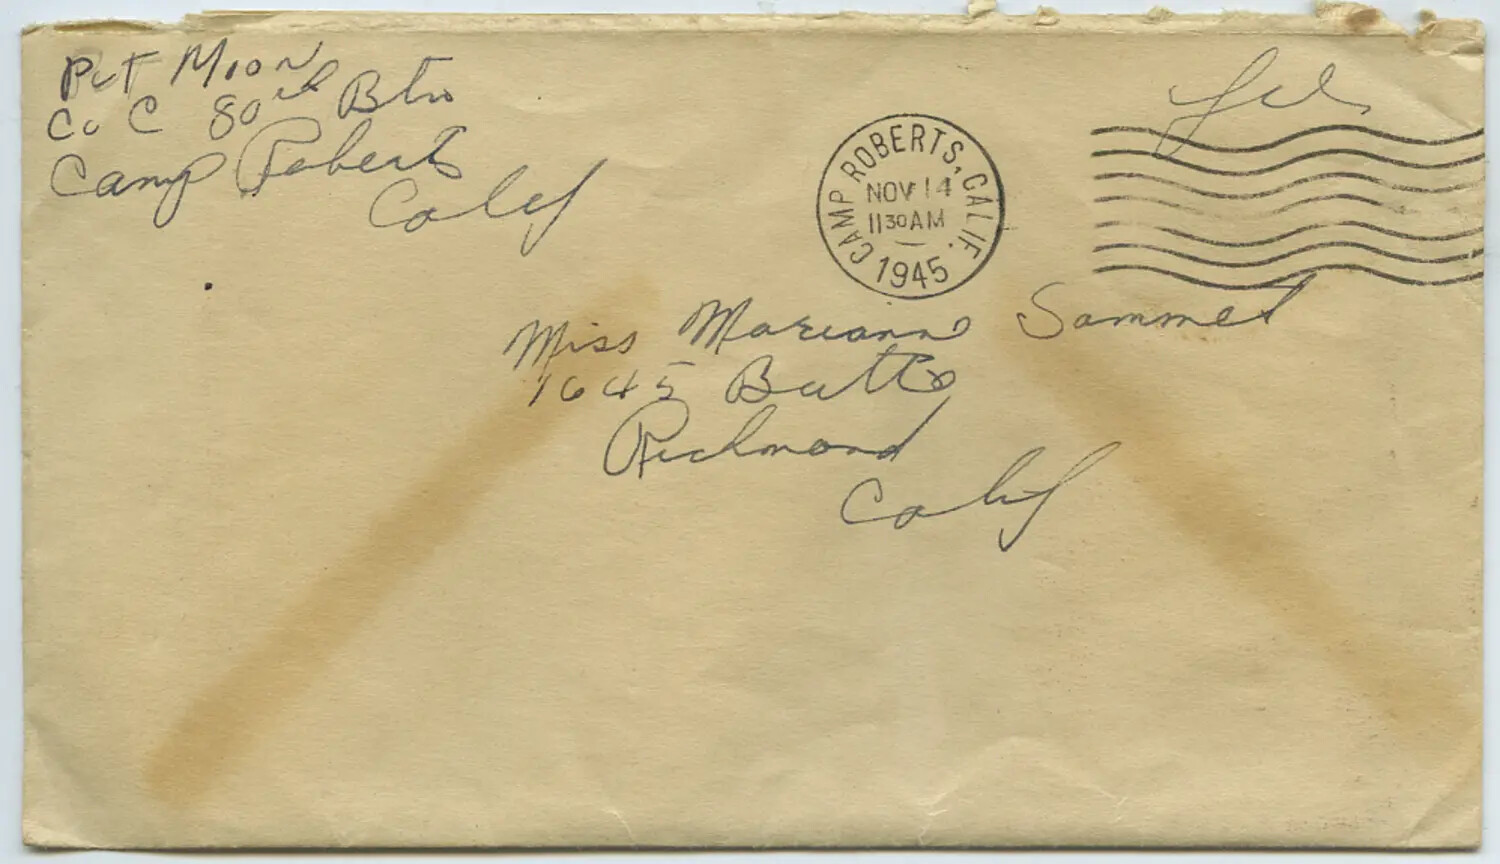 Pvt Mion
Co C 80th Btn
Camp Roberts
Calif
CAMP ROBERTS, CALIF.
NOV 14
11 30 AM
1945
Miss Mariann Sammet
1645 Butte
Richmond
Calif